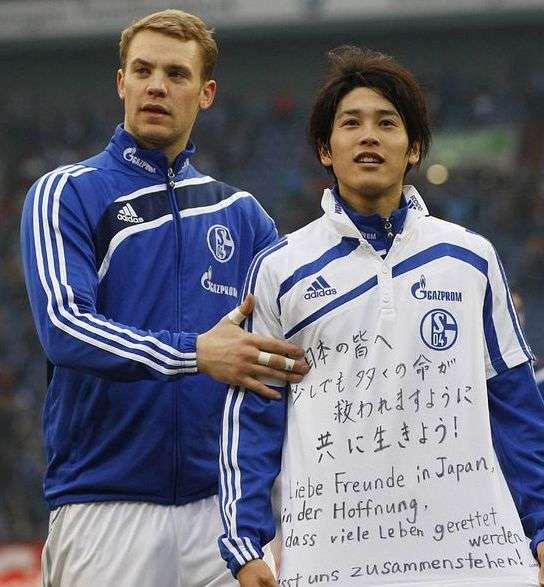 GAZPROM
adidas
S04
GAZPROM
GAZPROM
adidas
GAZPROM
S04
日本の皆へ
少しでも多くの命が
救われますように
共に生きよう!
Liebe Freunde in Japan,
in der Hoffnung,
dass viele Leben gerettet
werden
sst uns zusammenstehen!